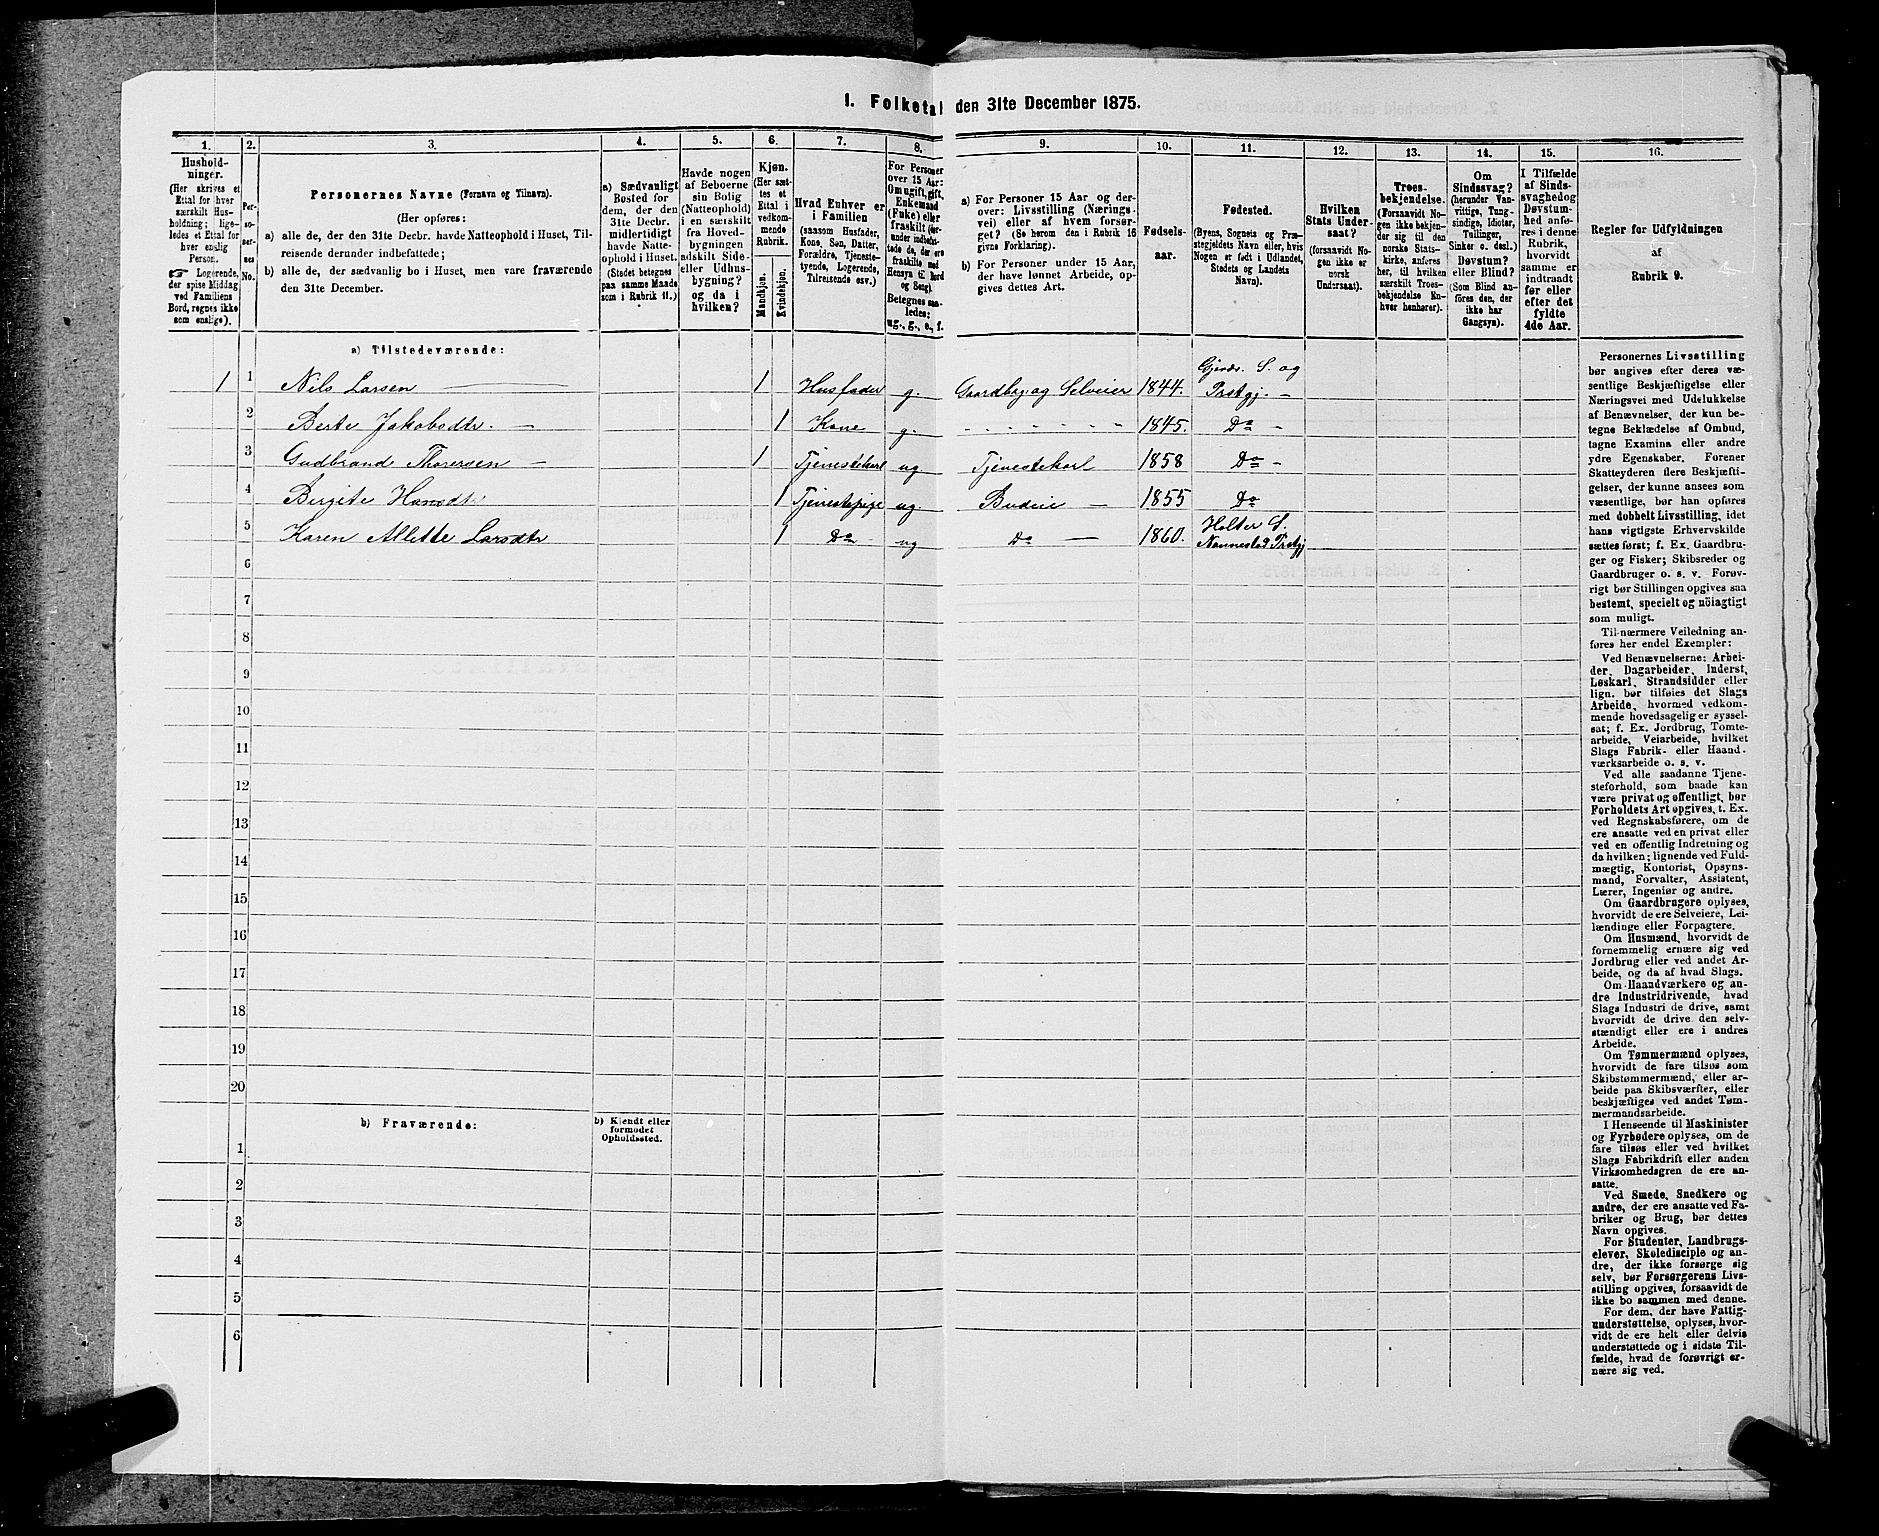 I. Folketal den 31te December 1875.
1. 2. 3. 4. 5. 6. 7. 8. 9. 10. 11. 12. 13. 14. 15. 16.
Hushold-
ninger.
(Her skrives et
Ettal for hver
særskilt Hus-
holdning; lige-
ledes et Ettal for
hver enslig
Person.
☞ Logerende,
der spise Middag
ved Familiens
Bord, regnes ikke
som enslige).
Per-
so-
ner-
nes
No.
Personernes Navne (Fornavn og Tilnavn).
(Her opføres:
a) alle de, der den 31te Decbr. havde Natteophold i Huset, Til-
reisende derunder indbefattede;
b) alle de, der sædvanlig bo i Huset, men vare fraværende
den 31te December.
a) Sædvanligt
Bosted for
dem, der den
31te Decbr.
midlertidigt
havde Natte-
ophold i Huset.
(Stedet betegnes
paa samme Maade
som i Rubrik 11.)
Havde nogen
af Beboerne
sin Bolig
(Natteophold)
i en særskilt
fra Hoved-
bygningen
adskilt Side-
eller Udhus-
bygning?
og da i
hvilken?
Kjøn.
(Her sæt-
tes et
Ettal i
vedkom-
mende
Rubrik.
Mandkjøn.
Kvindekjøn.
Hvad Enhver er
i Familien
(saasom Husfader,
Kone, Søn, Datter,
Forældre, Tjeneste-
tyende, Logerende,
Tilreisende osv.)
For Personer
over 15 Aar:
Om ugift, gift,
Enkemand
(Enke) eller
fraskilt
Betegnes saa-
ledes:
ug., g., e., f.
a) For Personer 15 Aar og der-
over: Livsstilling (Nærings-
vei) eller af hvem forsør-
get? (Se herom den i Rubrik 16
givne Forklaring).
b) For Personer under 15 Aar,
der have lønnet Arbeide, op-
gives dettes Art.
Fødsels-
aar.
Fødested.
(Byens, Sognets og Præ-
stegjeldets Navn eller, hvis
Nogen er født i Udlandet,
Stedets og Landets
Navn).
Hvilken
Stats Under-
saat?
(forsaavidt No-
gen ikke er
norsk
Undersaat).
Troes-
bekjendelse.
(Forsaavidt No-
gen ikke bekjen-
der sig til den
norske Stats-
kirke, anføres
her, til hvilken
særskilt Troes-
bekjendelse En-
hver henhører).
Om
Sindssvag?
(herunder Van-
vittige, Tung-
sindige, Idioter,
Tullinger,
Sinker o. desl.)
Døvstum?
eller Blind?
(Som Blind an-
føres den, der
ikke har
Gangsyn).
I Tilfælde
af Sinds-
svaghed og
Døvstum-
hed anfø-
res i denne
Rubrik,
hvorvidt
samme er
indtraadt
før eller
efter det
fyldte
4de Aar.
Regler for Udfyldningen
af
Rubrik 9.
a) Tilstedeværende:
1 1 Nils Larsen 1 Husfader g. Gaardbr. og Selveier 1844. Gjerdr. S. og Prstgj.
2 Berte Jakobsdtr. 1 Kone g. 1845. Do
3 Gudbrand Thorersen 1 Tjenestekarl ug Tjenestekarl 1858 Do
4 Birgite Hansdtr 1 Tjenestepige ug. Budeie 1855 Do
5 Karen Allette Larsdtr 1 Do ug Do 1860. Holter S. Nannestad Prstgj
6
7
8
9
10
11
12
13
14
15
16
17
18
19
20
b) Fraværende:
b) Kjendt eller
formodet
Opholdssted.
1
2
3
4
5
6
Personernes Livsstilling
bør angives efter deres væ-
sentlige Beskjæftigelse eller
Næringsvei med Udelukkelse
af Benævnelser, der kun be-
tegne Beklædelse af Ombud,
tagne Examina eller andre
ydre Egenskaber. Forener
Skatteyderen flere Beskjæfti-
gelser, der kunne ansees som
væsentlige, bør han opføres
med dobbelt Livsstilling, idet
hans vigtigste Erhvervskilde
sættes først; f. Ex. Gaardbru-
ger og Fisker; Skibsreder og
Gaardbruger o. s. v. Forøv-
rigt bør Stillingen opgives saa
bestemt, specielt og nöiagtigt
som muligt.
Til nærmere Veiledning an-
føres her endel Exempler:
Ved Benævnelserne: Arbei-
der, Dagarbeider, Inderst,
Løskarl, Strandsidder eller
lign. bør tilføies det Slags
Arbeide, hvormed vedkom-
mende hovedsagelig er syssel-
sat; f. Ex. Jordbrug, Tomte-
arbeide, Veiarbeide, hvilket
Slags Fabrik- eller Haand-
værksarbeide o. s. v.
Ved alle saadanne Tjene-
steforhold, som baade kan
være privat og offentligt, bør
Forholdets Art opgives, t. Ex.
ved Regnskabsførere, om de
ere ansatte ved en privat eller
ved en offentlig Indretning og
da hvilken; lignende ved Fuld-
mægtig, Kontorist, Opsyns-
mand, Forvalter, Assistent,
Lærer, Ingeniør og andre.
Om Gaardbrugere oplyses,
hvorvidt de ere Selveiere, Lei-
lændinge eller Forpagtere.
Om Husmænd, hvorvidt de
fornemmelig ernære sig ved
Jordbrug eller ved andet Ar-
beide, og da af hvad Slags.
Om Haandværkere og an-
dre Industridrivende, hvad
Slags Industri de drive, samt
hvorvidt de drive den selv-
stændigt eller ere i andres
Arbeide.
Om Tømmermænd oplyses,
hvorvidt de fare tilsøs som
Skibstømmermænd, eller ar-
beide paa Skibsværfter, eller
beskjæftiges ved andet Tøm-
mermandsarbeide.
I Henseende til Maskinister
og Fyrbødere oplyses, om de
fare tilsøs eller ved hvilket
Slags Fabrikdrift eller anden
Virksomhedsgren de ere an-
satte.
Ved Smede, Snedkere og
andre, der ere ansatte ved Fa-
briker og Brug, bør dettes
Navn opgives.
For Studenter, Landbrugs-
elever, Skoledisciple og an-
dre, der ikke forsørge sig
selv, bør Forsørgerens Livs-
stilling opgives, forsaavidt de
ikke bo sammen med denne.
For dem, der have Fattig-
understøttelse, oplyses, hvor-
vidt de ere helt eller delvis
understøttede og i sidste Til-
fælde, hvad de forøvrigt er-
nære sig ved.